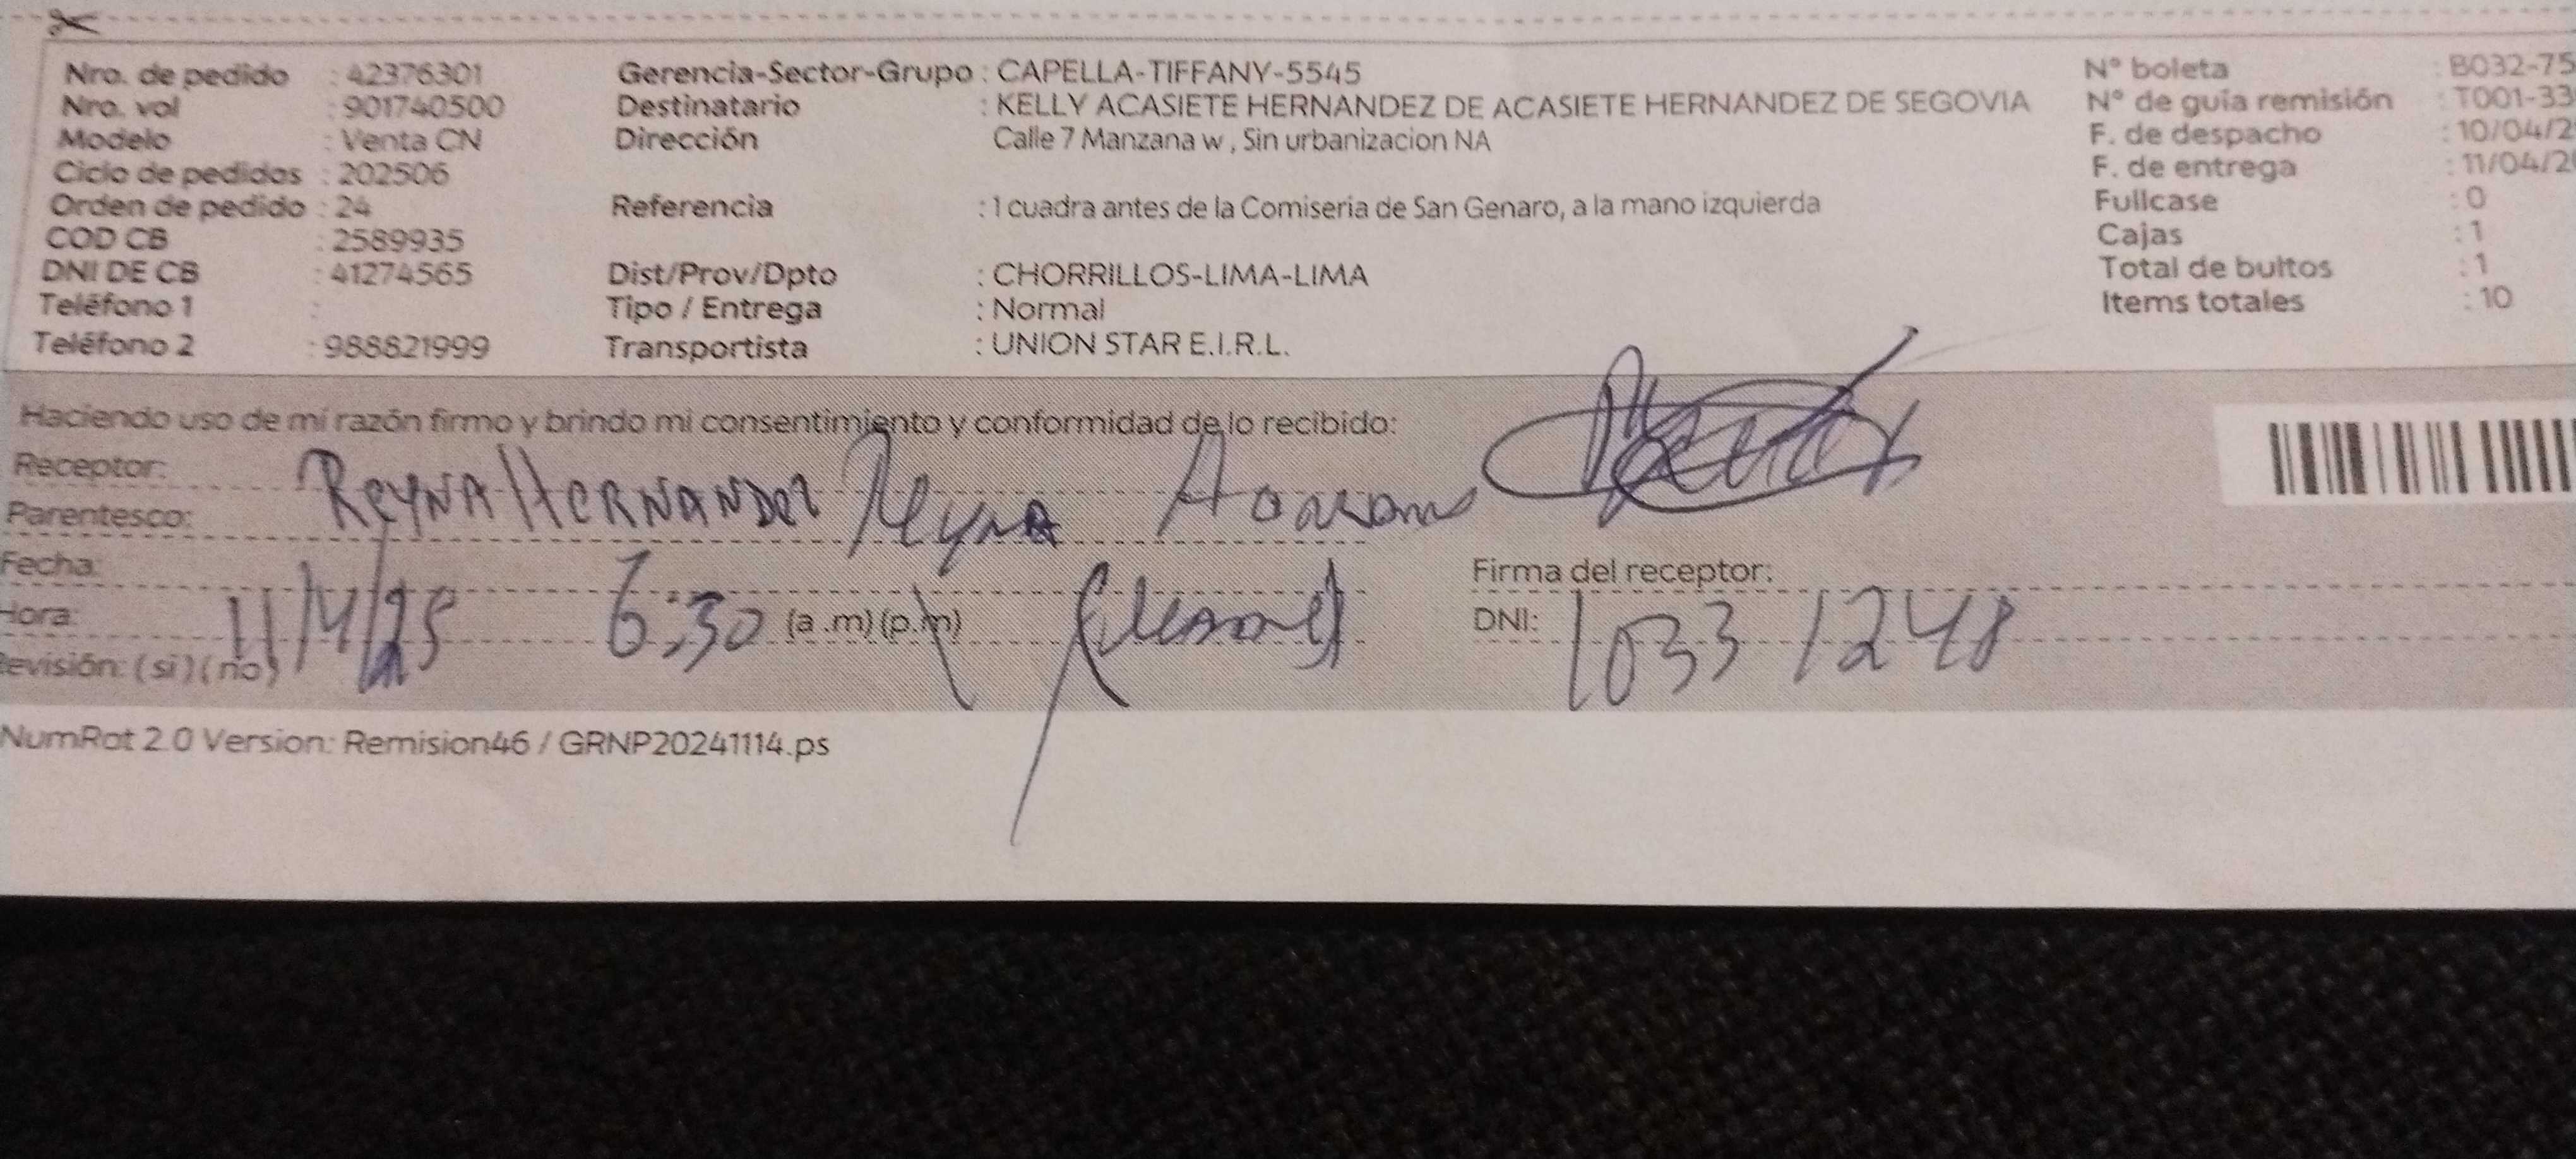 Nro. de pedido : 42376301 Gerencia-Sector-Grupo : CAPELLA-TIFFANY-5545 N° boleta : B032-75
Nro. vol : 901740500 Destinatario : KELLY ACASIETE HERNANDEZ DE ACASIETE HERNANDEZ DE SEGOVIA N° de guía remisión : T001-33
Modelo : Venta CN Dirección Calle 7 Manzana w , Sin urbanizacion NA F. de despacho : 10/04/2
Ciclo de pedidos : 202506 F. de entrega : 11/04/2
Orden de pedido : 24 Referencia : 1 cuadra antes de la Comiseria de San Genaro, a la mano izquierda Fullcase : 0
COD CB : 2589935 Cajas : 1
DNI DE CB : 41274565 Dist/Prov/Dpto : CHORRILLOS-LIMA-LIMA Total de bultos : 1
Teléfono 1 : Tipo / Entrega : Normal Items totales : 10
Teléfono 2 : 988821999 Transportista : UNION STAR E.I.R.L.
Haciendo uso de mi razón firmo y brindo mi consentimiento y conformidad de lo recibido:
Receptor:
Parentesco: REYNA HERNANDEZ Reyna
Fecha: Firma del receptor:
Hora: 11/4/25 6:30 (a .m) (p.m) DNI: 10331248
Revisión: ( si ) ( no )
NumRot 2.0 Version: Remision46 / GRNP20241114.ps